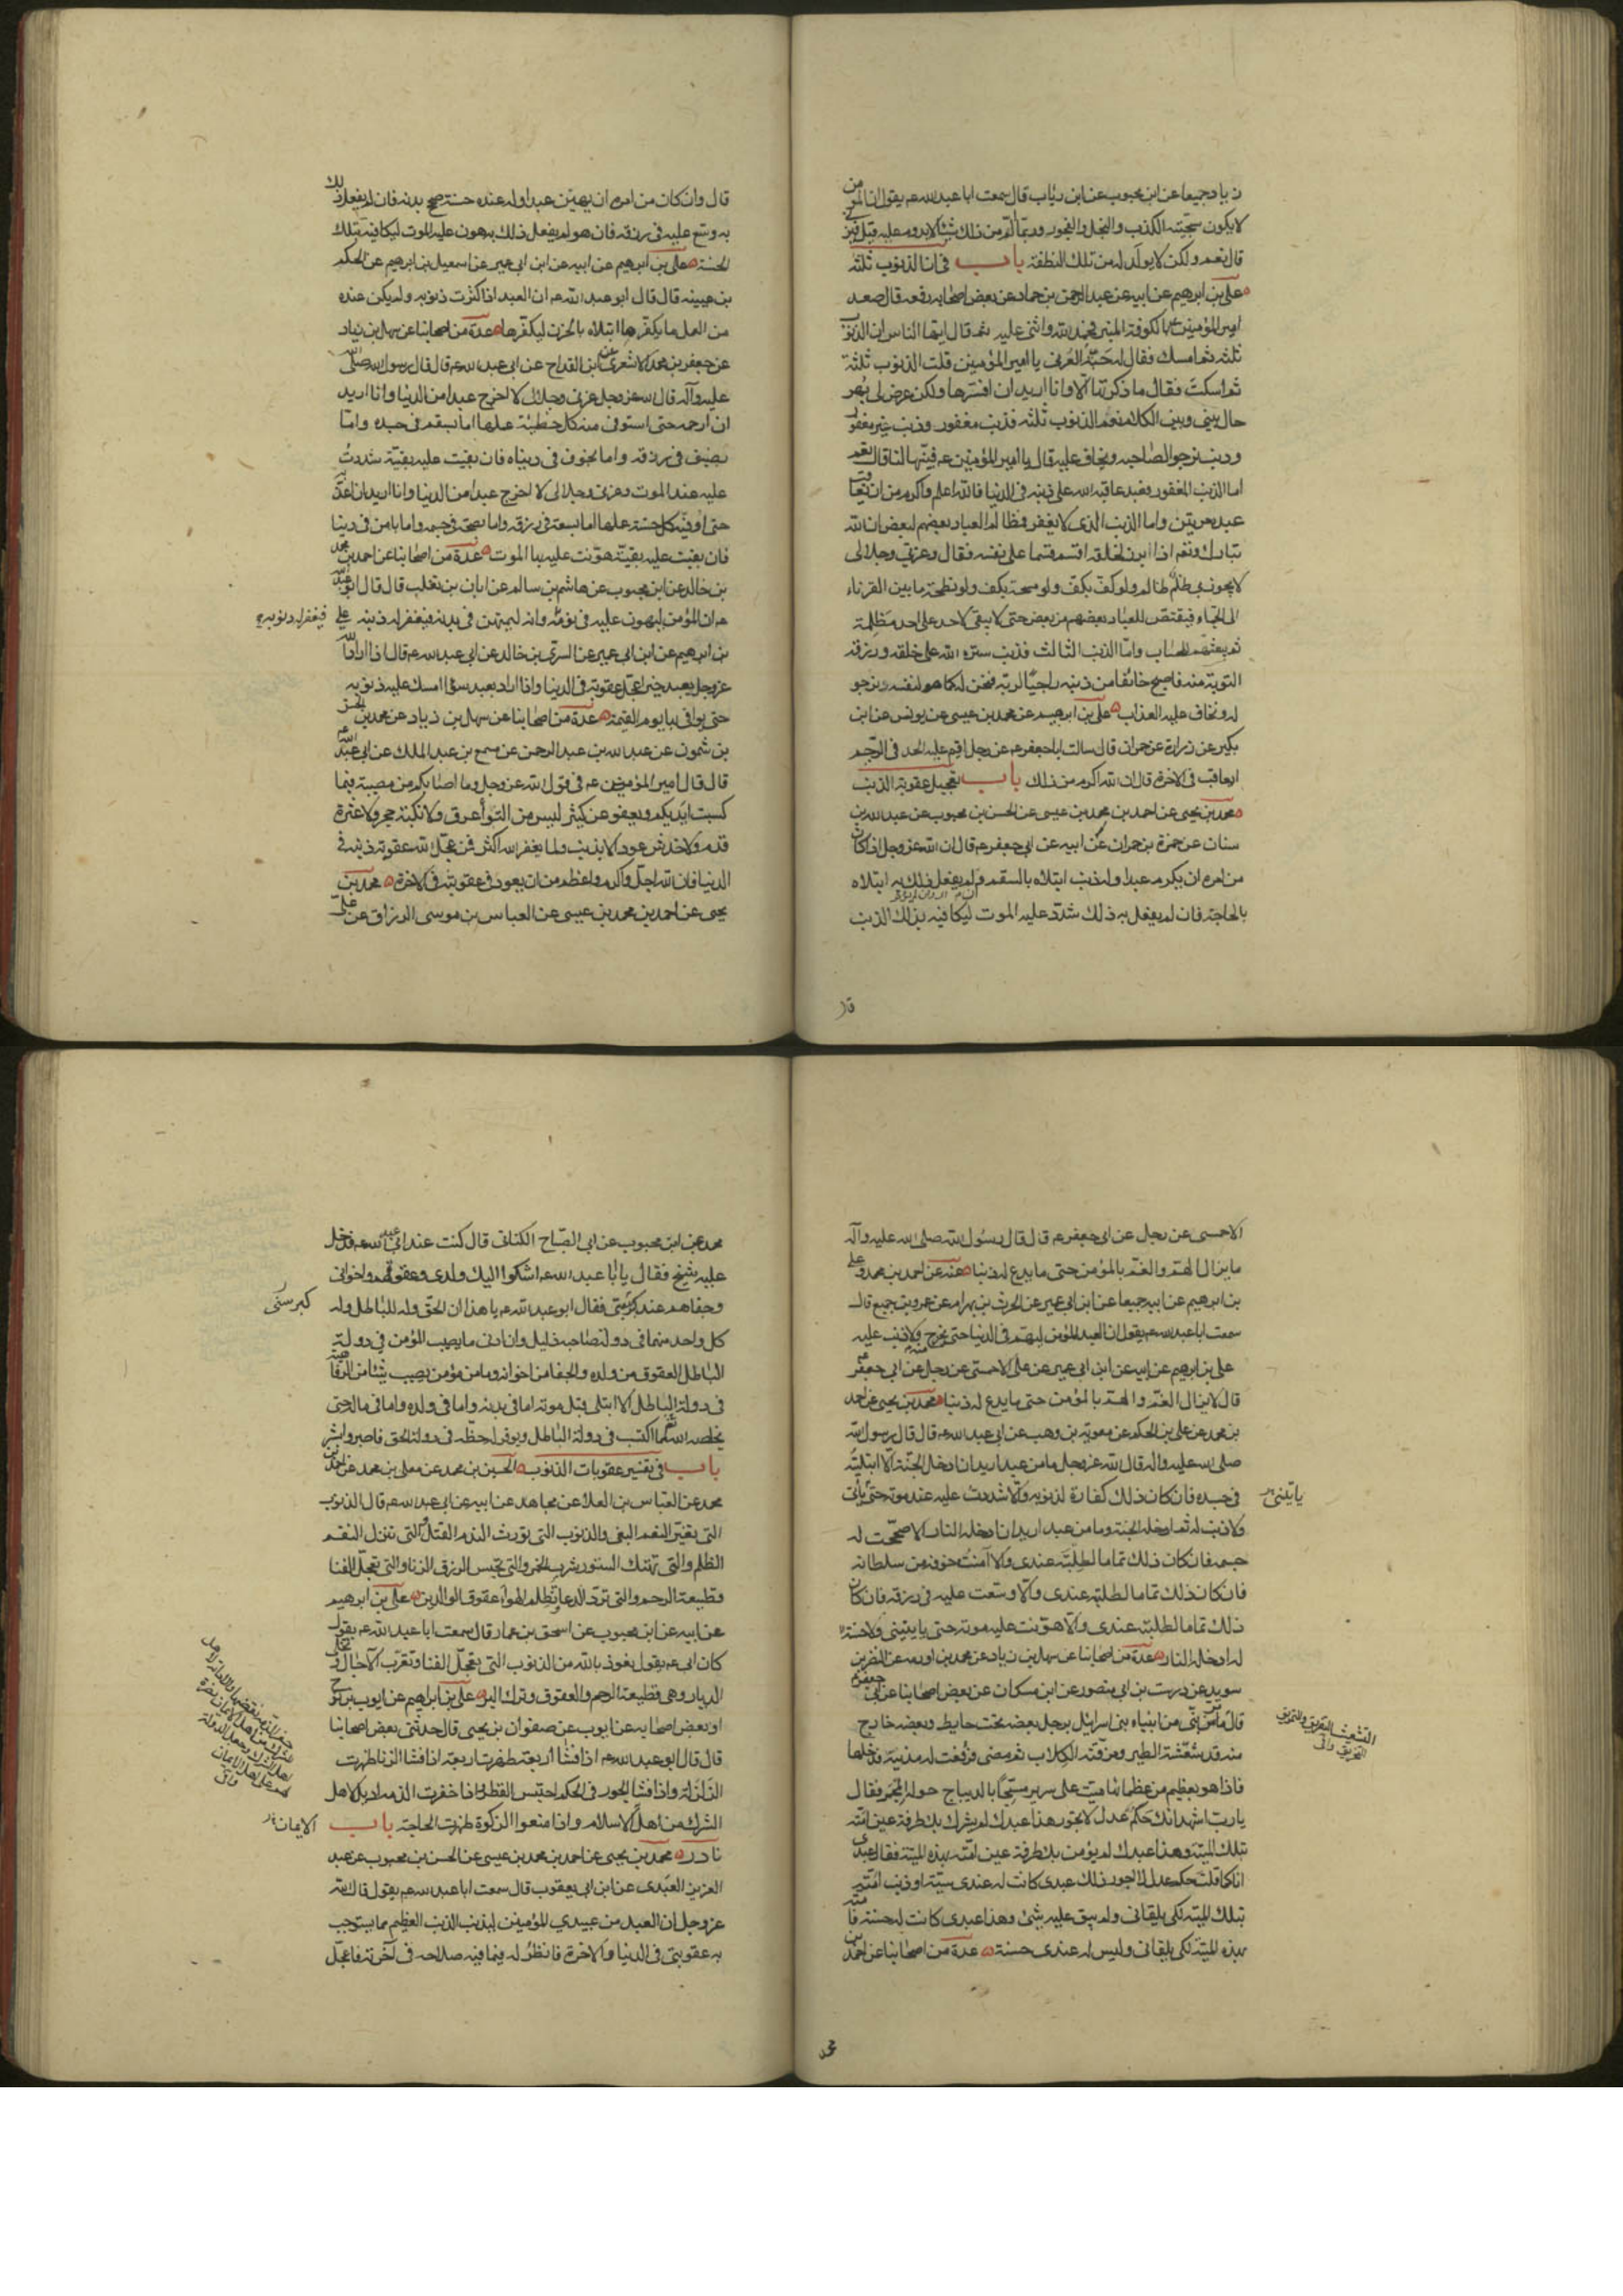 ن زياد جميعا عن ابن محبوب عن ابن رئاب قال سمعت ابا عبد الله ع يقول ان المؤمن
لا يكون سجيته الكذب والبخل والفجور وربما الم من ذلك شيئا لا يدوم عليه قيل فيزني
قال نعم ولكن لا يولد له من تلك النطفة باب في ان الذنوب ثلثة
علي بن ابرهيم عن ابيه عن عبد الرحمن بن حماد عن بعض اصحابه رفعه قال صعد
امير المؤمنين ع بالكوفة المنبر فحمد الله واثنى عليه ثم قال ايها الناس ان الذنوب
ثلثة ثم امسك فقال له حبة العرني يا امير المؤمنين قلت الذنوب ثلثة
ثم امسكت فقال ما ذكرتها الا وانا اريد ان افسرها ولكن عرض لي بهر
حال بيني وبين الكلام نعم الذنوب ثلثة فذنب مغفور وذنب غير مغفور
وذنب نرجو لصاحبه ونخاف عليه قال يا امير المؤمنين ع فبينها لنا قال نعم
اما الذنب المغفور فعبد عاقبه الله على ذنبه في الدنيا فالله اعلم واكرم من ان يعاقب
عبده مرتين واما الذنب الذي لا يغفر فمظالم العباد بعضهم لبعض ان الله
تبارك وتعم اذا ابرز لخلقه اقسم قسما على نفسه فقال وعزتي وجلالي
لا يجوزني ظلم ظالم ولو كف بكف ولو مسحة بكف ولو نطحة ما بين القرناء
الى الجماء فيقتص للعباد بعضهم من بعض حتى لا يبقى لاحد على احد مظلمة
ثم يبعثهم للحساب واما الذنب الثالث فذنب ستره الله على خلقه ورزقه
التوبة منه فاصبح خائفا من ذنبه راجيا لربه فنحن له كما هو لنفسه نرجو
له ونخاف عليه العذاب علي بن ابرهيم عن محمد بن عيسى عن يونس عن ابن
بكير عن زرارة عن حمران قال سالت ابا جعفر ع عن رجل اقيم عليه الحد في الرجم
ايعاقب في الاخرة قال ان الله اكرم من ذلك باب تعجيل عقوبة الذنب
محمد بن يحيى عن احمد بن محمد بن عيسى عن الحسن بن محبوب عن عبد الله بن
سنان عن حمزة بن حمران عن ابيه عن ابي جعفر ع قال ان الله عز وجل اذا كان
من امره ان يكرم عبدا وله ذنب ابتلاه بالسقم فان لم يفعل ذلك به ابتلاه
بالحاجة فان لم يفعل به ذلك شدد عليه الموت ليكافيه بذلك الذنب
قال وان كان من امره ان يهين عبدا وله عنده حسنة صحح بدنه فان لم يفعل ذلك
به وسع عليه في رزقه فان هو لم يفعل ذلك به هون عليه الموت ليكافيه بتلك
الحسنة علي بن ابرهيم عن ابيه عن ابن ابي عمير عن اسمعيل بن ابرهيم عن الحكم
بن عيينه قال قال ابو عبد الله ع ان العبد اذا كثرت ذنوبه ولم يكن عنده
من العمل ما يكفرها ابتلاه بالحزن ليكفرها عدة من اصحابنا عن سهل بن زياد
عن جعفر بن محمد الاشعري عن ابن القداح عن ابي عبد الله ع قال قال رسول الله صلى الله
عليه وآله قال الله عز وجل وعزتي وجلالي لا اخرج عبدا من الدنيا وانا اريد
ان ارحمه حتى استوفي منه كل خطيئة عملها اما بسقم في جسده واما
بضيق في رزقه واما بخوف في دنياه فان بقيت عليه بقية شددت
عليه عند الموت وعزتي وجلالي لا اخرج عبدا من الدنيا وانا اريد ان اعذبه
حتى اوفيه كل حسنة عملها اما بسعة في رزقه واما بصحة في جسمه واما بامن في دنياه
فان بقيت عليه بقية هونت عليه بها الموت عدة من اصحابنا عن احمد بن محمد
بن خالد عن ابن محبوب عن هاشم بن سالم عن ابان بن تغلب قال قال ابو عبد الله
ع ان المؤمن ليهول عليه في نومه فيغفر له ذنوبه وانه ليمتهن في بدنه فيغفر له ذنبه علي
بن ابرهيم عن ابن ابي عمير عن السري بن خالد عن ابي عبد الله ع قال اذا اراد الله
عز وجل بعبد خيرا عجل عقوبته في الدنيا واذا اراد بعبد سوءا امسك عليه ذنوبه
حتى يوافي بها يوم القيمة عدة من اصحابنا عن سهل بن زياد عن محمد بن الحسن
بن شمون عن عبد الله بن عبد الرحمن عن مسمع بن عبد الملك عن ابي عبد الله ع
قال قال امير المؤمنين ع في قول الله عز وجل وما اصابكم من مصيبة فبما
كسبت ايديكم ويعفو عن كثير ليس من التواء عرق ولا نكبة حجر ولا عثرة
قدم ولا خدش عود الا بذنب ولما يغفر الله اكثر فمن عجل الله عقوبة ذنبه في
الدنيا فان الله اجل واكرم واعظم من ان يعود في عقوبته في الاخرة محمد بن
يحيى عن احمد بن محمد بن عيسى عن العباس بن موسى الوراق عن علي
الاحمسي عن رجل عن ابي جعفر ع قال قال رسول الله صلى الله عليه وآله
ما يزال الهم والغم بالمؤمن حتى ما يدع له ذنبا عنه عن احمد بن محمد وعلي
بن ابرهيم عن ابيه جميعا عن ابن ابي عمير عن الحرث بن بهرام عن عمرو بن جميع قال
سمعت ابا عبد الله ع يقول ان العبد المؤمن ليهتم في الدنيا حتى يخرج منها ولا ذنب عليه
علي بن ابرهيم عن ابيه عن ابن ابي عمير عن علي الاحمسي عن رجل عن ابي جعفر ع
قال لا يزال الغم والهم بالمؤمن حتى ما يدع له ذنبا محمد بن يحيى عن احمد
بن محمد عن علي بن الحكم عن معوية بن وهب عن ابي عبد الله ع قال قال رسول الله
صلى الله عليه واله قال الله عز وجل ما من عبد اريد ان ادخله الجنة الا ابتليته
في جسده فان كان ذلك كفارة لذنوبه والا شددت عليه عند موته حتى يأتي
ولا ذنب له ثم ادخله الجنة وما من عبد اريد ان ادخله النار الا صححت له
جسمه فان كان ذلك تماما لطلبته عندي والا آمنت خوفه من سلطانه
فان كان ذلك تماما لطلبته عندي والا وسعت عليه في رزقه فان كان
ذلك تماما لطلبته عندي والا هونت عليه موته حتى ياتيني ولا حسنة
له ادخله النار عدة من اصحابنا عن سهل بن زياد عن محمد بن اورمه عن النضر بن
سويد عن درست بن ابي منصور عن ابن مسكان عن بعض اصحابنا عن ابي جعفر ع
قال مر نبي من انبياء بني اسرائيل برجل بعضه تحت حايط وبعضه خارج
منه قد شعثته الطير ومزقته الكلاب ثم مضى فرفعت له مدينة فدخلها
فاذا هو بعظيم من عظمائها ميت على سرير مسجا بالديباج حوله المجمر فقال
يا رب اشهد انك حكم عدل لا تجور هذا عبدك لم يشرك بك طرفة عين امته
بتلك الميتة وهذا عبدك لم يؤمن بك طرفة عين امته بهذه الميتة فقال عبدي
انا كما قلت حكم عدل لا اجور ذلك عبدي كانت له عندي سيئة او ذنب امته
بتلك الميتة لكي يلقاني ولم يبق عليه شئ وهذا عبدي كانت له حسنة فامته
بهذه الميتة لكي يلقاني وليس له عندي حسنة عدة من اصحابنا عن احمد بن
محمد عن ابن محبوب عن ابي الصباح الكناني قال كنت عند ابي عبد الله ع فدخل
عليه شيخ فقال يا با عبد الله ع اشكوا اليك ولدي وعقوقهم واخواني
وجفاهم عند كبر سني فقال ابو عبد الله ع يا هذا ان للحق دولة وللباطل دولة
كل واحد منهما في دولة صاحبه ذليل وان ادنى ما يصيب المؤمن في دولة
الباطل العقوق من ولده والجفا من اخوانه وما من مؤمن يصيب شيئا من الرفاهية
في دولة الباطل الا ابتلي قبل موته اما في بدنه واما في ولده واما في ماله حتى
يخلصه الله مما اكتسب في دولة الباطل ويوفر له حظه في دولة الحق فاصبر وابشر
باب في تفسير عقوبات الذنوب الحسين بن محمد عن معلى بن محمد عن احمد بن
محمد عن العباس بن العلا عن مجاهد عن ابيه عن ابي عبد الله ع قال الذنوب
التي تغير النعم البغي والذنوب التي تورث الندم القتل والتي تنزل النقم
الظلم والتي تهتك الستور شرب الخمر والتي تحبس الرزق الزنا والتي تعجل الفنا
قطيعة الرحم والتي ترد الدعا وتظلم الهواء عقوق الوالدين علي بن ابرهيم
عن ابيه عن ابن محبوب عن اسحق بن عمار قال سمعت ابا عبد الله ع يقول
كان ابي ع يقول نعوذ بالله من الذنوب التي تعجل الفنا وتقرب الآجال وتخلي
الديار وهي قطيعة الرحم والعقوق وترك البر علي بن ابراهيم عن ايوب بن نوح
او بعض اصحابه عن ايوب عن صفوان بن يحيى قال حدثني بعض اصحابنا
قال قال ابو عبد الله ع اذا فشا اربعة ظهرت اربعة اذا فشا الزنا ظهرت
الزلزلة واذا فشا الجور في الحكم احتبس القطر واذا خفرت الذمة اديل لاهل
الشرك من اهل الاسلام واذا منعوا الزكوة ظهرت الحاجة باب
نادر محمد بن يحيى عن احمد بن محمد بن عيسى عن الحسن بن محبوب عن عبد
العزيز العبدي عن ابن ابي يعفور قال سمعت ابا عبد الله ع يقول قال الله
عز وجل ان العبد من عبيدي المؤمنين ليذنب الذنب العظيم مما يستوجب
به عقوبتي في الدنيا والاخرة فانظر له فيما فيه صلاحه في آخرته فاعجل
فيغفر له ذنوبه
ياتيني
كبر سني
الايمان
محمد